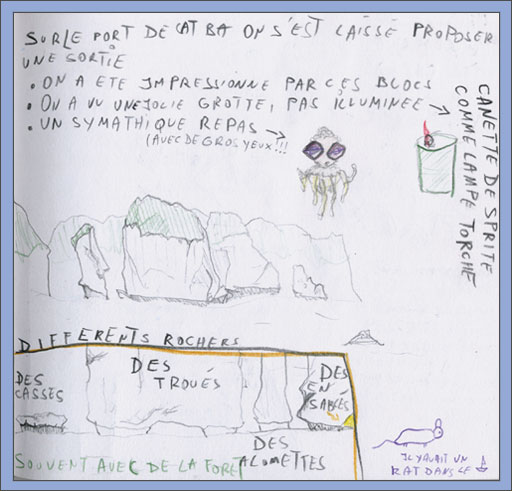 SUR LE PORT DE CAT BA ON S'EST LAISSÉ PROPOSER
UNE SORTIE
• ON A ETE IMPRESSIONNE PAR CES BLOCS
• ON A VU UNE JOLIE GROTTE, PAS ILLUMINEE →
• UN SYMATHIQUE REPAS →
(AVEC DE GROS YEUX!!!
CANETTE DE SPRITE
COMME LAMPE TORCHE
DIFFERENTS ROCHERS
DES
CASSÉS
DES
TROUÉS
DES
EN
SABLÉS
DES
ALUMETTES
SOUVENT AVEC DE LA FORET
IL Y AVAIT UN
RAT DANS CE